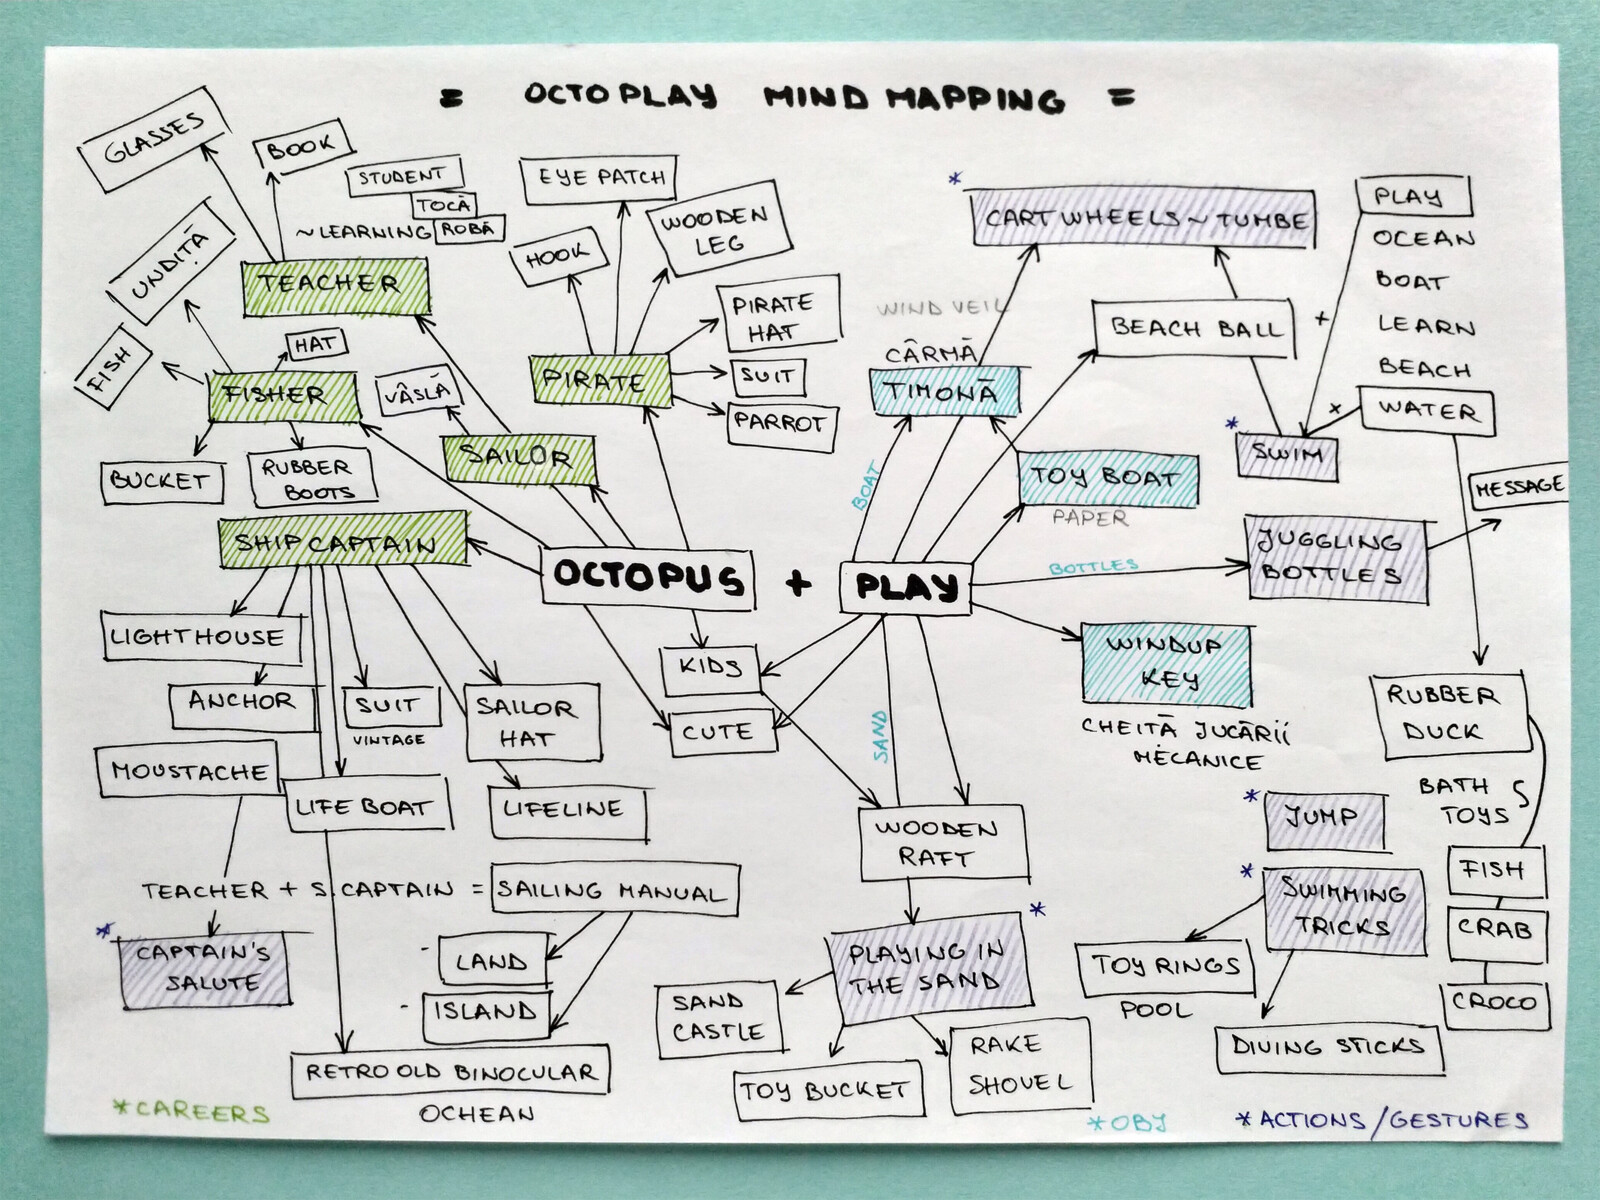 = OCTOPLAY MIND MAPPING =
GLASSES
BOOK
STUDENT
TOCĂ
~LEARNING ROBĂ
UNDIȚĂ
TEACHER
FISH
HAT
FISHER
VÂSLĂ
SAILOR
BUCKET
RUBBER
BOOTS
SHIP CAPTAIN
EYE PATCH
WOODEN
LEG
HOOK
PIRATE
HAT
PIRATE
SUIT
PARROT
OCTOPUS + PLAY
*
CARTWHEELS ~ TUMBE
WIND VEIL
CÂRMĂ
TIMONĂ
BEACH BALL
+
PLAY
OCEAN
BOAT
LEARN
BEACH
WATER
x
*
SWIM
BOAT
TOY BOAT
PAPER
MESSAGE
BOTTLES
JUGGLING
BOTTLES
WINDUP
KEY
CHEITĂ JUCĂRII
MECANICE
LIGHTHOUSE
ANCHOR
SUIT
VINTAGE
SAILOR
HAT
MOUSTACHE
LIFE BOAT
LIFELINE
KIDS
CUTE
SAND
WOODEN
RAFT
RUBBER
DUCK
BATH
TOYS
FISH
CRAB
CROCO
*
JUMP
*
SWIMMING
TRICKS
TOY RINGS
POOL
DIVING STICKS
TEACHER + S.CAPTAIN = SAILING MANUAL
*
CAPTAIN'S
SALUTE
- LAND
- ISLAND
RETRO OLD BINOCULAR
OCHEAN
*
PLAYING IN
THE SAND
SAND
CASTLE
TOY BUCKET
RAKE
SHOVEL
*CAREERS
*OBJ
*ACTIONS/GESTURES